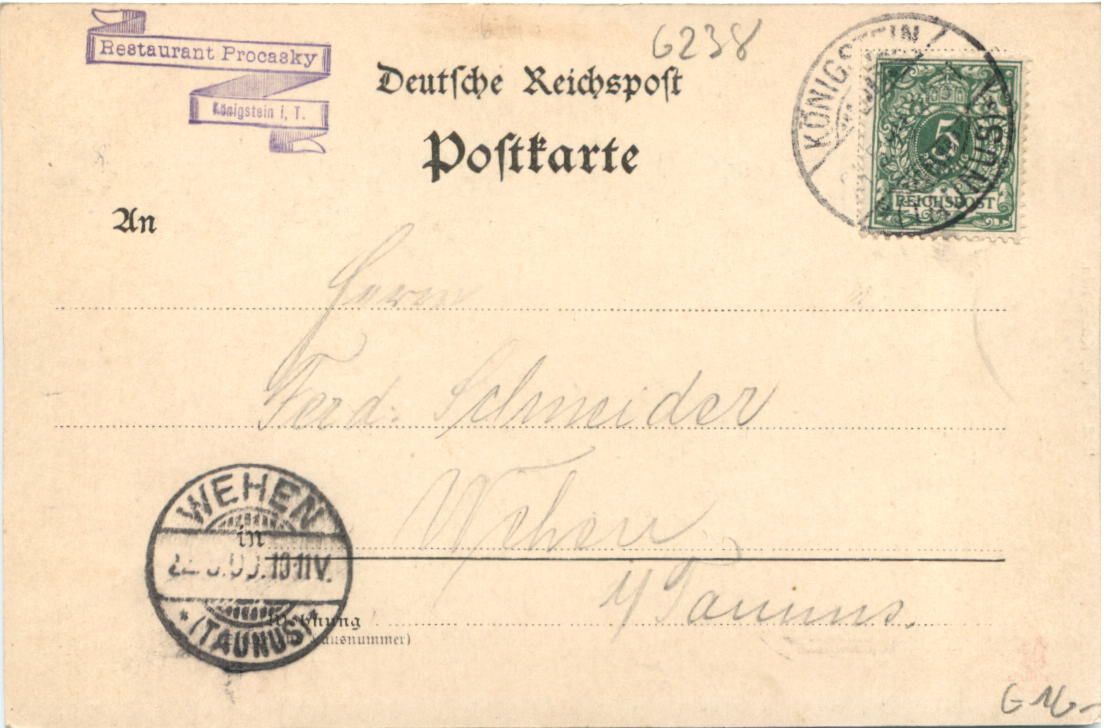 Restaurant Procasky
Königstein i. T.
6238
Deutsche Reichspost
Postkarte
KÖNIGSTEIN
(TAUNUS)
5
REICHSPOST
An
Herrn
Ferd. Schneider
in
Wehen
i/Taunus.
WEHEN
10-11V.
* (TAUNUS) *
Wohnung
(Straße und Hausnummer)
G 16-